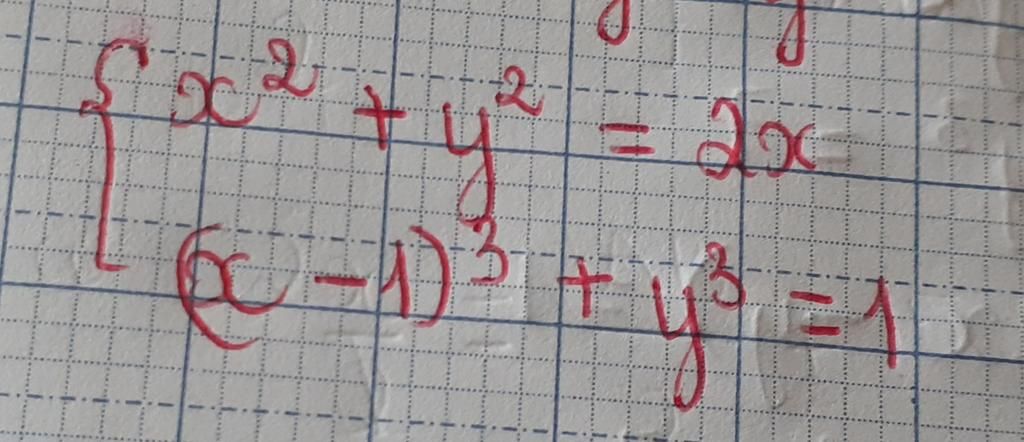 x² + y² = 2x
(x - 1)³ + y³ = 1